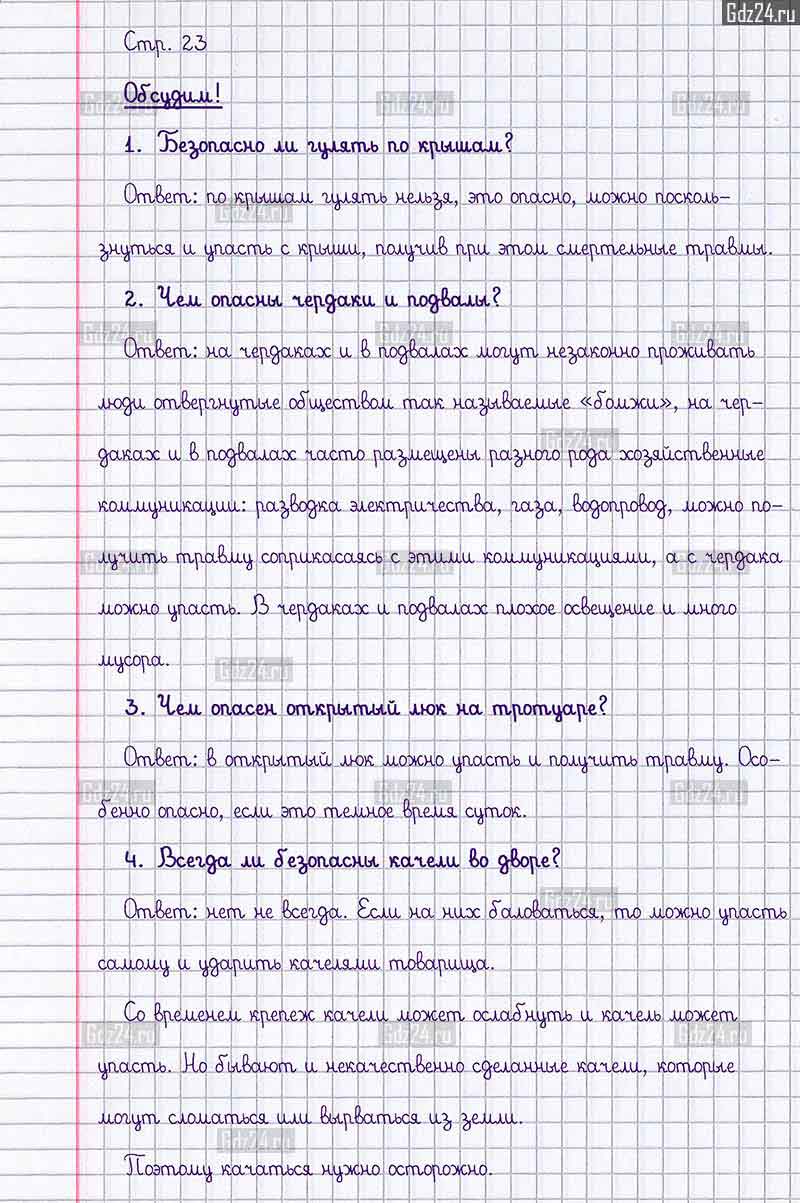 Gdz24.ru
Стр. 23
Обсудим!
1. Безопасно ли гулять по крышам?
Ответ: по крышам гулять нельзя, это опасно, можно посколь-
знуться и упасть с крыши, получив при этом смертельные травмы.
2. Чем опасны чердаки и подвалы?
Ответ: на чердаках и в подвалах могут незаконно проживать
люди отвергнутые обществом так называемые «бомжи», на чер-
даках и в подвалах часто размещены разного рода хозяйственные
коммуникации: разводка электричества, газа, водопровод, можно по-
лучить травму соприкасаясь с этими коммуникациями, а с чердака
можно упасть. В чердаках и подвалах плохое освещение и много
мусора.
3. Чем опасен открытый люк на тротуаре?
Ответ: в открытый люк можно упасть и получить травму. Осо-
бенно опасно, если это темное время суток.
4. Всегда ли безопасны качели во дворе?
Ответ: нет не всегда. Если на них баловаться, то можно упасть
самому и ударить качелями товарища.
Со временем крепеж качели может ослабнуть и качель может
упасть. Но бывают и некачественно сделанные качели, которые
могут сломаться или вырваться из земли.
Поэтому качаться нужно осторожно.